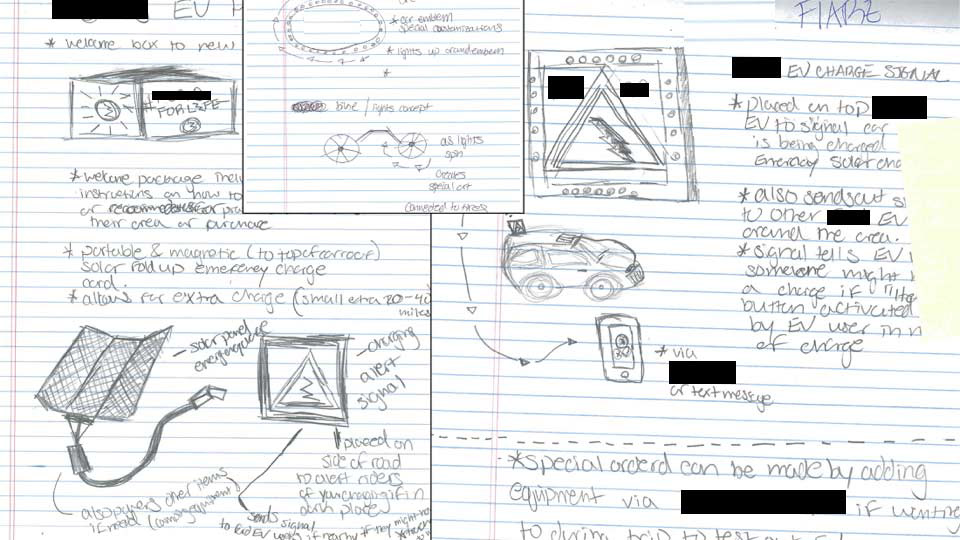 EV
* welcome box to new
FOR LIFE
* welcome package
instructions on how to
or for
their area or purchase
* portable & magnetic (to top of car roof)
solar roll up emergency charge
card.
* allows for extra charge (small extra 20-40
miles
solar panel
charging
alert
signal
placed on
side of road
to alert riders
of your charging if in
dark place
also powers other items
if need (camping equipment)
sends signal
to EV users if nearby if they might
* car emblem
special customizations
* lights up around emblem
*
bike / lights concept
as lights
spin
creates
special art
connected to
EV CHARGE SIGNAL
* placed on top
EV to signal car
is being charged
Energy Solar cha
* also sends out si
to other EV
around the area.
* signal tells EV
someone might
a charge if
button activated
by EV user in n
of charge
* via
or text message
* special orderd can be made by adding
equipment via if wanting
to during trip to test out